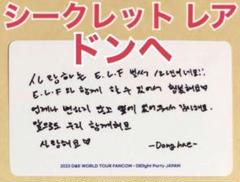 シークレット レア
ドンへ
사랑하는 E.L.F 벌써 12년이네요!!
E.L.F와 함께 할 수 있어서 행복해요♡
언제나 변하지 않고 옆에 있어줘서 감사해요.
앞으로도 우리 함께해요
사랑해요♡ -Donghae-
2023 D&E WORLD TOUR FANCON - DElight Party JAPAN